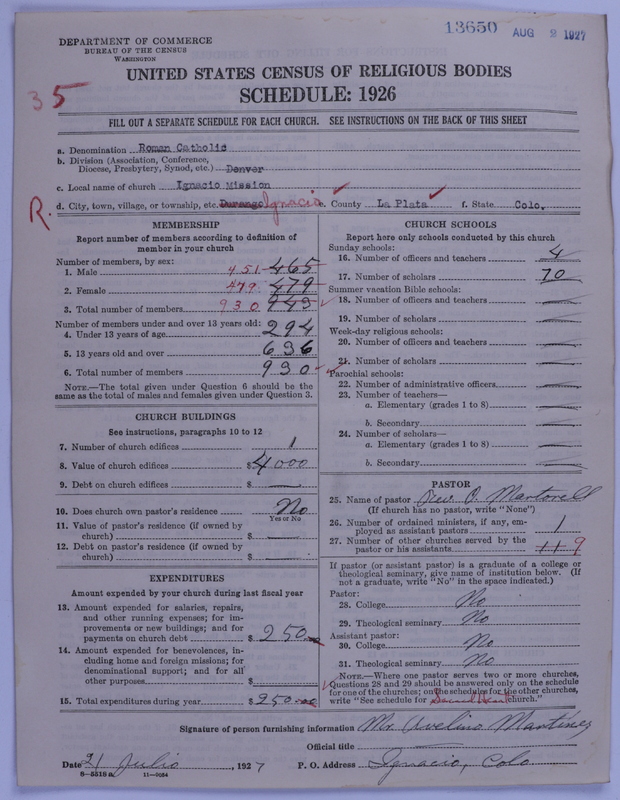 13650 AUG 2 1927
DEPARTMENT OF COMMERCE
BUREAU OF THE CENSUS
WASHINGTON
35
UNITED STATES CENSUS OF RELIGIOUS BODIES
SCHEDULE: 1926
FILL OUT A SEPARATE SCHEDULE FOR EACH CHURCH. SEE INSTRUCTIONS ON THE BACK OF THIS SHEET
a. Denomination Roman Catholic
b. Division (Association, Conference,
Diocese, Presbytery, Synod, etc.) Denver
c. Local name of church Ignacio Mission
d. City, town, village, or township, etc. Durango Ignacio e. County La Plata f. State Colo.
R.
MEMBERSHIP
Report number of members according to definition of
member in your church
Number of members, by sex:
1. Male 451 465
2. Female 479 479
3. Total number of members 930 943
Number of members under and over 13 years old:
4. Under 13 years of age 294
5. 13 years old and over 636
6. Total number of members 930
NOTE.—The total given under Question 6 should be
same as the total of males and females given under Question 3.
CHURCH BUILDINGS
See instructions, paragraphs 10 to 12
7. Number of church edifices 1
8. Value of church edifices $4000
9. Debt on church edifices $
10. Does church own pastor's residence No
Yes or No
11. Value of pastor's residence (if owned by
church) $
12. Debt on pastor's residence (if owned by
church) $
EXPENDITURES
Amount expended by your church during last fiscal year
13. Amount expended for salaries, repairs,
and other running expenses; for im-
provements or new buildings; and for
payments on church debt $250
14. Amount expended for benevolences, in-
cluding home and foreign missions; for
denominational support; and for all
other purposes $
15. Total expenditures during year $250
CHURCH SCHOOLS
Report here only schools conducted by this church
Sunday schools:
16. Number of officers and teachers 4
17. Number of scholars 70
Summer vacation Bible schools:
18. Number of officers and teachers
19. Number of scholars
Week-day religious schools:
20. Number of officers and teachers
21. Number of scholars
Parochial schools:
22. Number of administrative officers
23. Number of teachers—
a. Elementary (grades 1 to 8)
b. Secondary
24. Number of scholars—
a. Elementary (grades 1 to 8)
b. Secondary
PASTOR
25. Name of pastor Rev. O. Martorell
(If church has no pastor, write "None")
26. Number of ordained ministers, if any, em-
ployed as assistant pastors 1
27. Number of other churches served by the
pastor or his assistants 11 9
If pastor (or assistant pastor) is a graduate of a college or
theological seminary, give name of institution below. (If
not a graduate, write "No" in the space indicated.)
Pastor:
28. College No
29. Theological seminary No
Assistant pastor:
30. College No
31. Theological seminary No
NOTE.—Where one pastor serves two or more churches,
Questions 28 and 29 should be answered only on the schedule
for one of the churches; on the schedules for the other churches,
write "See schedule for Sacred Heart church."
Signature of person furnishing information Mr. Avelino Martínez
Official title
Date 21 Julio, 1927 P. O. Address Ignacio, Colo
8—5518a 11—9054